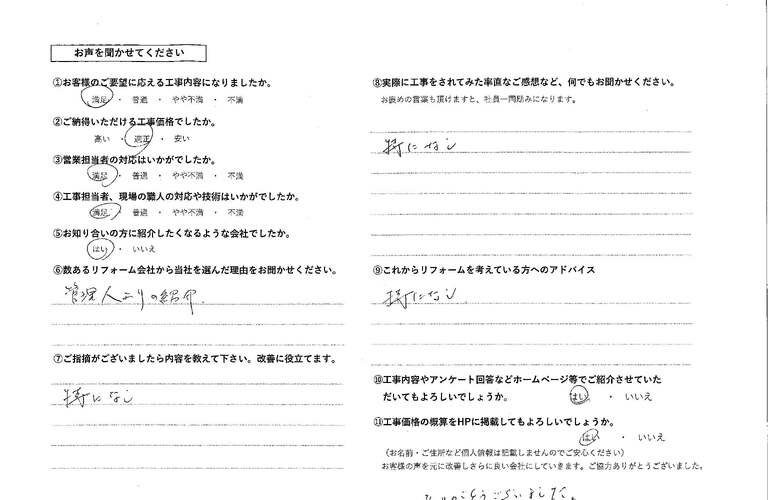 お声を聞かせてください
①お客様のご要望に応える工事内容になりましたか。
満足 ・ 普通 ・ やや不満 ・ 不満
②ご納得いただける工事価格でしたか。
高い ・ 適正 ・ 安い
③営業担当者の対応はいかがでしたか。
満足 ・ 普通 ・ やや不満 ・ 不満
④工事担当者、現場の職人の対応や技術はいかがでしたか。
満足 ・ 普通 ・ やや不満 ・ 不満
⑤お知り合いの方に紹介したくなるような会社でしたか。
はい ・ いいえ
⑥数あるリフォーム会社から当社を選んだ理由をお聞かせください。
管理人よりの紹介.
⑦ご指摘がございましたら内容を教えて下さい。改善に役立てます。
特になし
⑧実際に工事をされてみた率直なご感想など、何でもお聞かせください。
お褒めの言葉も頂けますと、社員一同励みになります。
特になし
⑨これからリフォームを考えている方へのアドバイス
特になし
⑩工事内容やアンケート回答などホームページ等でご紹介させていた
だいてもよろしいでしょうか。 はい ・ いいえ
⑪工事価格の概算をHPに掲載してもよろしいでしょうか。
はい ・ いいえ
（お名前・ご住所など個人情報は記載しませんのでご安心ください）
お客様の声を元に改善しさらに良い会社にしていきます。ご協力ありがとうございました。
ありがとうございました。